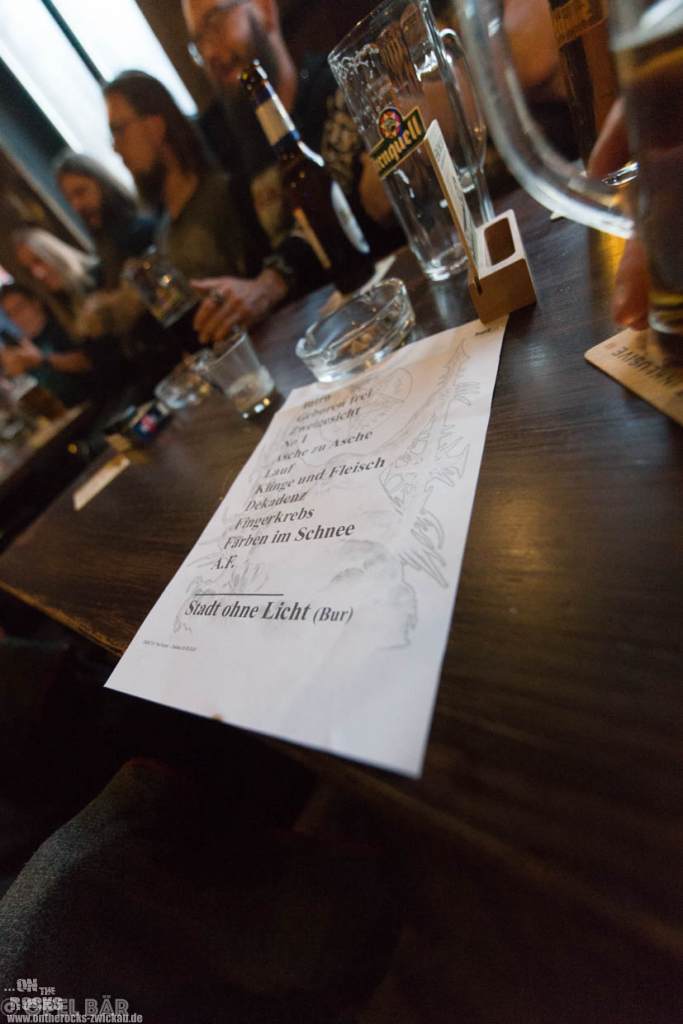 enquell
INKLUSIVE
Intro
Geboren frei
Zweigesicht
No 1
Asche zu Asche
Lauf
Klinge und Fleisch
Dekadenz
Fingerkrebs
Farben im Schnee
A.F.
Stadt ohne Licht (Bur)
...ON
THE
ROCKS
OPEL BÄR
www.ontherocks-zwickau.de